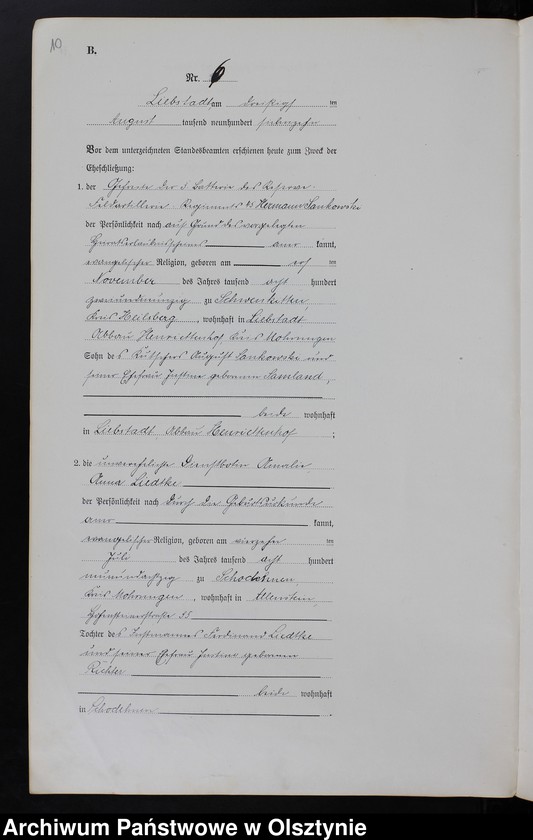 10
B.
Nr. 6
Liebstadt am dreißigsten
August tausend neunhundert siebenzehn
Vor dem unterzeichneten Standesbeamten erschienen heute zum Zweck der
Eheschließung:
1. der Gefreite der 1. Batterie des Reserve-
Feldartillerie-Regiments Hermann Sankowski
der Persönlichkeit nach auf Grund des vorgelegten
Heiratserlaubnisscheines aner kannt,
evangelischer Religion, geboren am elf ten
November des Jahres tausend acht hundert
zweiundneunzig zu Schwenkitten,
Kreis Heilsberg, wohnhaft in Liebstadt
Abbau Henriettenhof Kreis Mohrungen
Sohn des Kutschers August Sankowski und
seiner Ehefrau Justine geborenen Samland,
beide wohnhaft
in Liebstadt Abbau Henriettenhof ;
2. die unverehelichte Dienstbotin Amalie
Anna Liedtke
der Persönlichkeit nach durch die Geburtsurkunde
aner kannt,
evangelischer Religion, geboren am vierzehn ten
Juli des Jahres tausend acht hundert
neunundachtzig zu Schodehnen,
Kreis Mohrungen, wohnhaft in Allenstein,
Hohensteinerstraße 35
Tochter des Instmannes Ferdinand Liedtke
und seiner Ehefrau Justine geborenen
Richter
beide wohnhaft
in Schodehnen .
Archiwum Państwowe w Olsztynie